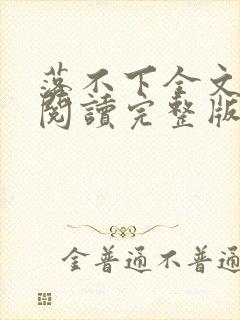 落不下全文
閱讀完整版
金普通不普通